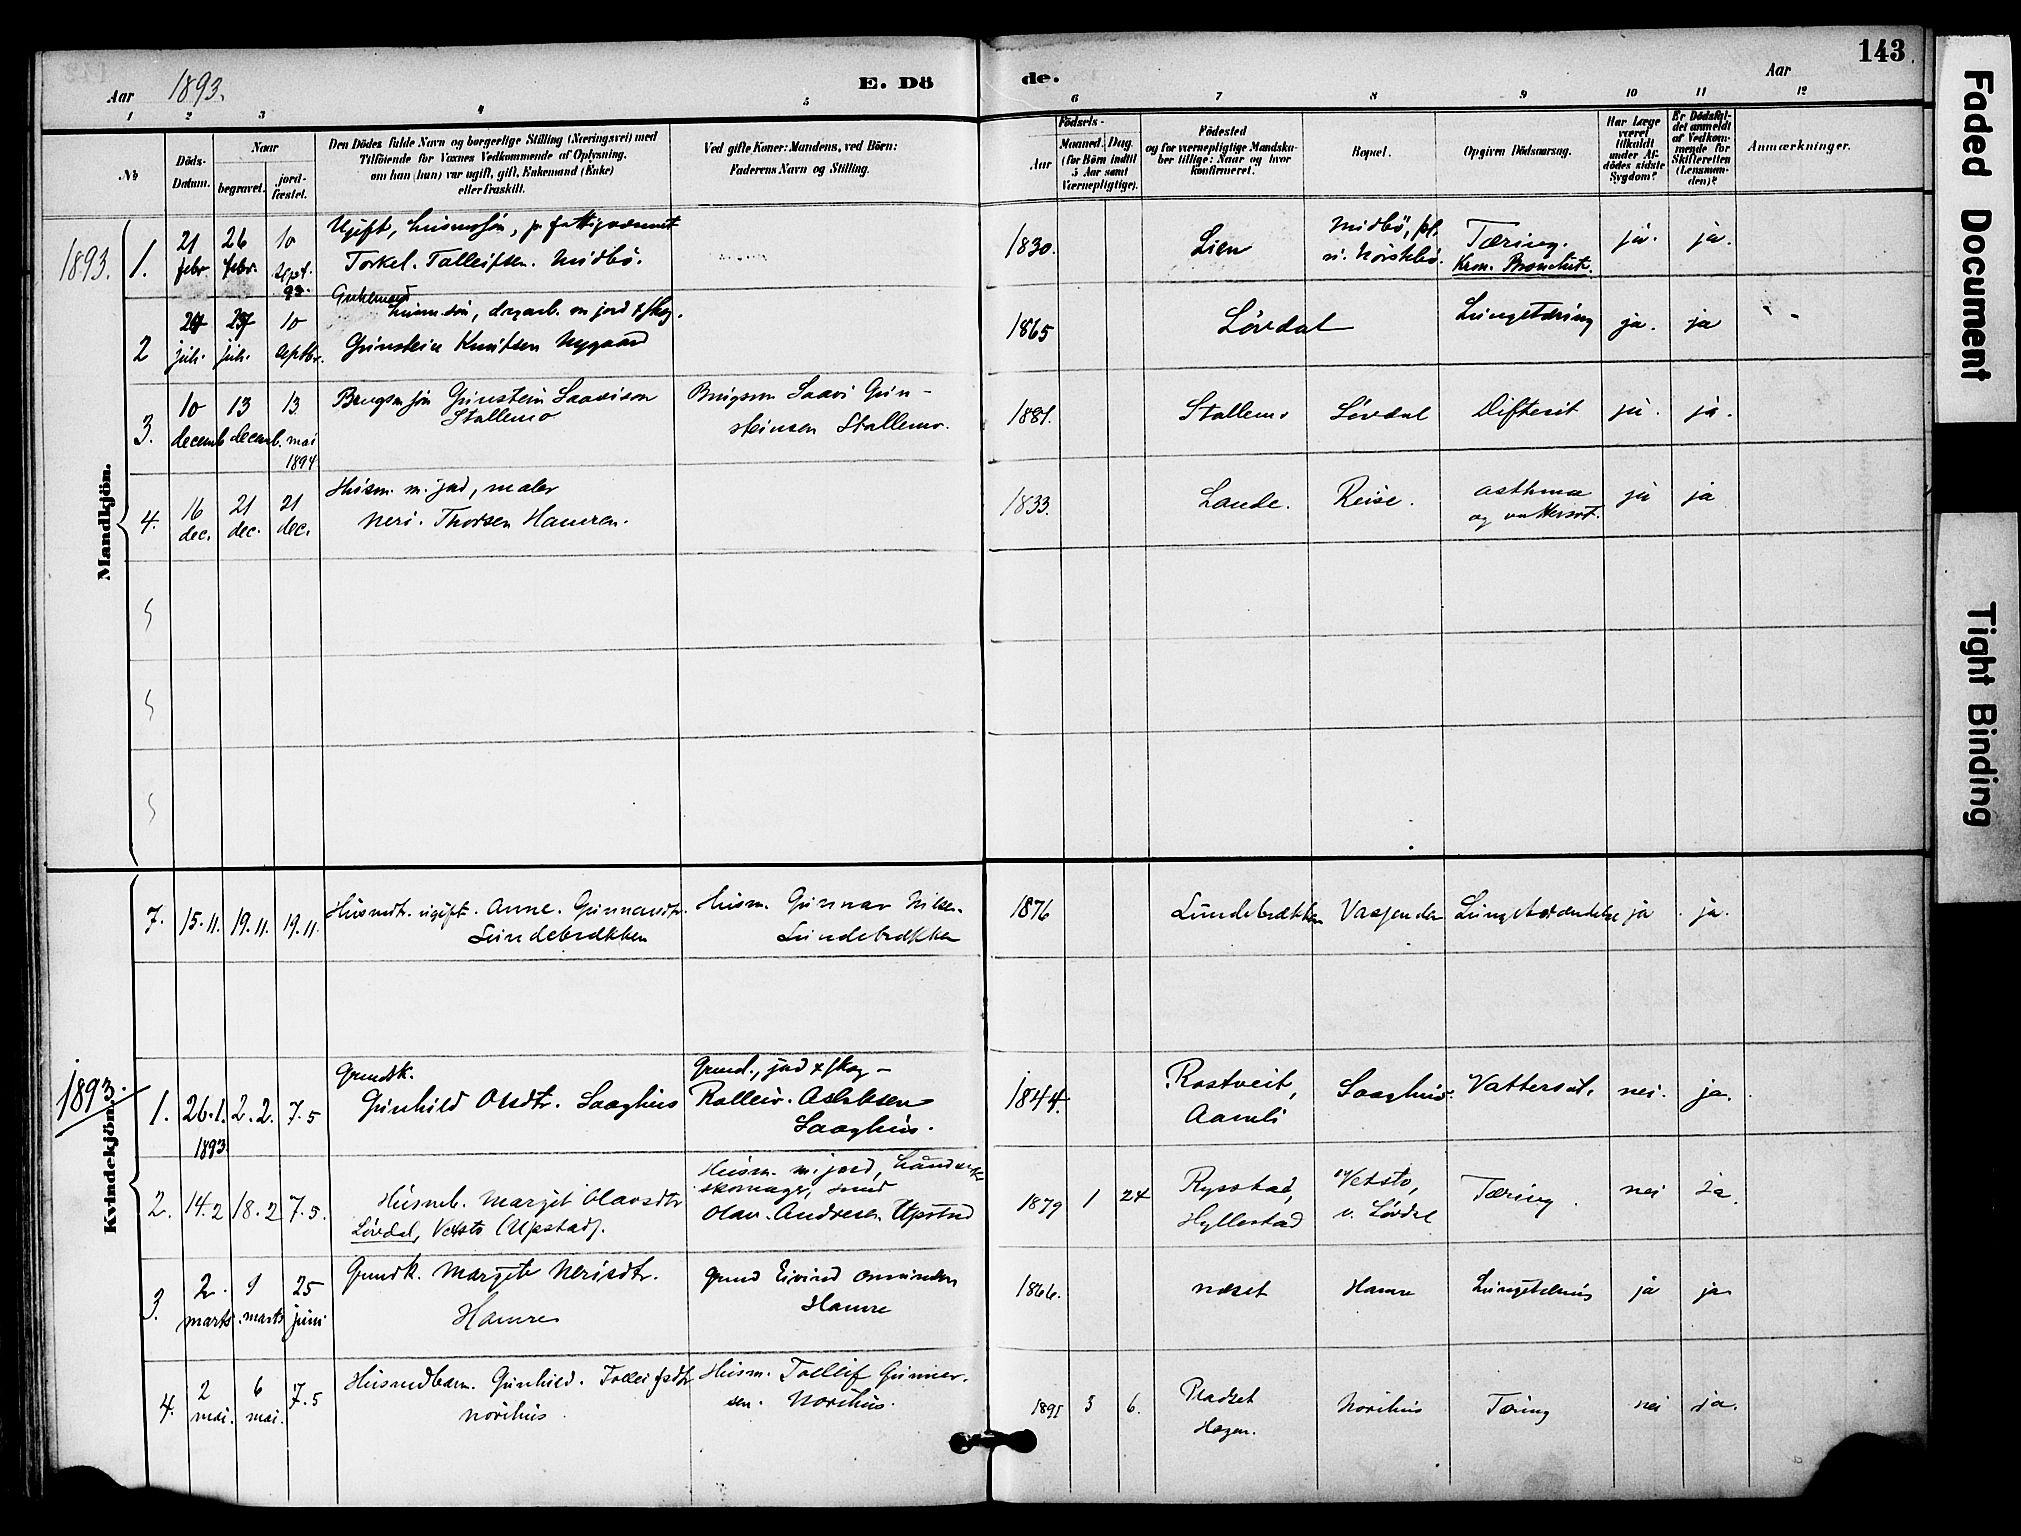 143
Aar 1893. E. Dö de. Aar
1 2 3 4 5 6 7 8 9 10 11 12
No
Döds-Datum.
Naar
begravet.
jord-fæstet.
Den Dödes fulde Navn og borgerlige Stilling (Næringsvei) med
Tilföiende for Voxnes Vedkommende af Oplysning,
om han (hun) var ugift, gift, Enkemand (Enke)
eller fraskilt.
Ved gifte Koner: Mandens, ved Börn:
Faderens Navn og Stilling.
Födsels-
Aar
Maaned. Dag.
(for Börn indtil
5 Aar samt
Værnepligtige).
Födested
og for værnepligtige Mandska-
ber tillige: Naar og hvor
konfirmeret.
Bopæl.
Opgiven Dödsaarsag.
Har Læge
været
tilkaldt
under Af-
dödes sidste
Sygdom?
Er Dödsfal-
det anmeldt
af Vedkom-
mende for
Skifteretten
(Lensman-
den)?
Anmærkninger.
Mandkjön.
1893.
1. 21 febr. 26 febr. 10 sept. 93.
Ugift,
Torkel. Talleifsen. Midbö.
1830. Lien Midbö, Tæring. Kron. Bronchit. ja. ja.
2 juli. juli. 10 septbr.
jord & skog.
Gunstein Knutsen Nygaard
1865 Lövdal Lungetæring ja. ja
3. 10 decemb. 13 decemb. 13 mai 1894
Brugsm sön Gunstein Saavison
Stallemo
Brugsm Saavi Gun-
steinsen Stallemo.
1881. Stallemo Lövdal Difterit ja. ja.
4. 16 dec. 21 dec. 21 dec.
Husm. m. jord, maler
Neri. Thorsen Hamren.
1833. Lande. Reise. asthma
og vattersot. ja ja
7. 15.11. 19.11. 19.11.
ugift. Anne. Gunnarsdtr.
Lundebrækken
Husm. Gunnar Nilsen.
Lundebrækken
1876 Lundebrækken Vasjenden ja. ja.
1893.
Kvindekjön.
1. 26.1. 1893. 2.2. 7.5
Grundk.
Gunhild Olsdtr. Saaghus
Grund., jord & skog -
Rolleiv. Aslaksen
Saaghus.
1844. Rostveit,
Aamli Saaghus. Vattersot. nei. ja.
2. 14.2 18.2 7.5.
Margit Olavsdtr
Lövdal, (Upstad).
Husm. m. jord,
skomager, smed
Olav. Andresen. Upstad
1879 1 24 Rysstad,
Hyllestad
v. Lövdal Tæring nei Ja.
3. 2. marts 9 marts 25 juni
Grundk. Margit Nerisdtr.
Hamre
Grund Eivind
Hamre
1866. næset Hamre ja ja
4. 2 mai. 6 mai. 7.5
Husmdbarn. Gunhild. Tolleifsdtr
Norihus
Husm. Tolleif Gunnar-
sen. Norihus.
1891 3 6. Pladset
Hagen. Norihus Tæring nei ja.
Faded Document
Tight Binding